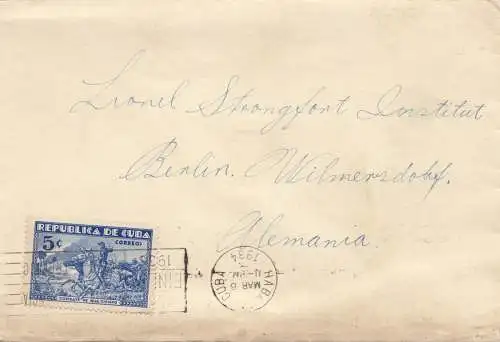 Lionel Strongfort Institut
Berlin. Wilmersdorf.
Alemania.
REPUBLICA DE CUBA
5¢ CORREOS
HABA
CUBA
MAR 6
1934